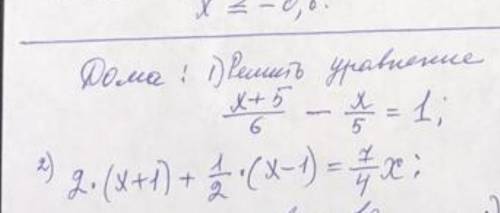 x ≤ -0,6.
Дома: 1) Решить уравнение
(x+5)/6 - x/5 = 1;
2) 2·(x+1) + 1/2·(x-1) = 7/4 x;